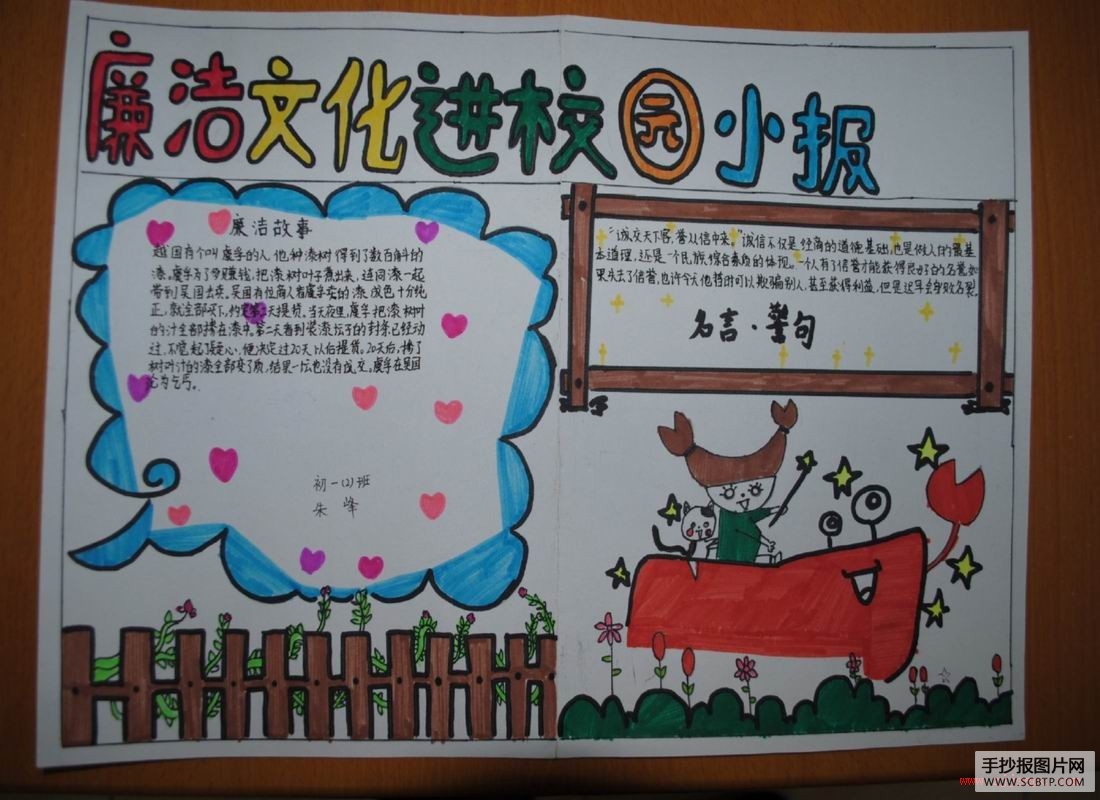 廉洁文化进校园小报
廉洁故事
越国有个叫虞孚的人,他种漆树得到了数百斛的
漆。虞孚为了多赚钱,把漆树叶子煮出来,连同漆一起
带到吴国去卖。吴国有位商人看虞孚卖的漆成色十分纯
正,就全部买下,约定第二天提货。当天夜里,虞孚把漆树叶
的汁全部掺在漆中。第二天看到装漆坛子的封条已经动
过,不觉起了疑心,便决定过20天以后提货。20天后,掺了
树叶汁的漆全部变了质,结果一坛也没有成交。虞孚在吴国
沦为乞丐。
初一(2)班
朱 峰
“诚交天下客,誉从信中来。”诚信不仅是经商的道德基础,也是做人的最基
本道理,还是一个民族综合素质的体现。一个人有了信誉才能获得良好的名誉,如
果失去了信誉,也许今天他暂时可以欺骗别人,甚至获得利益,但是迟早会身败名裂。
名言·警句
手抄报图片网
WWW.SCBTP.COM